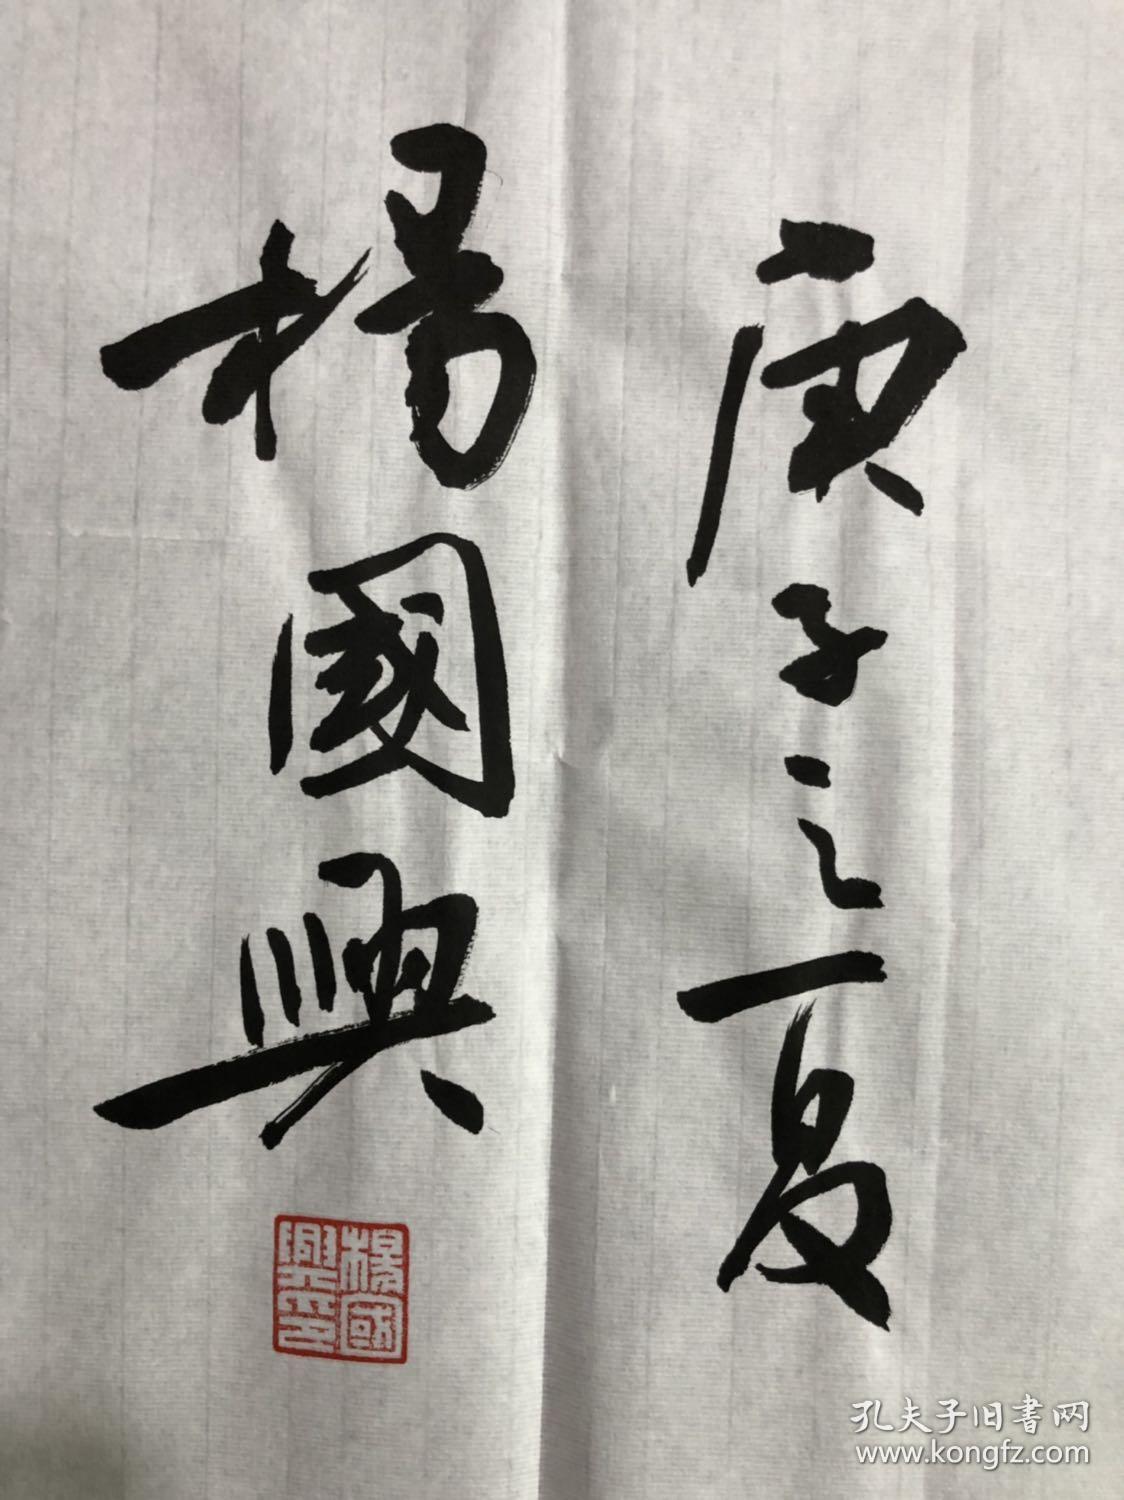 庚子之夏
楊國興
楊國興印
孔夫子旧書网
www.kongfz.com